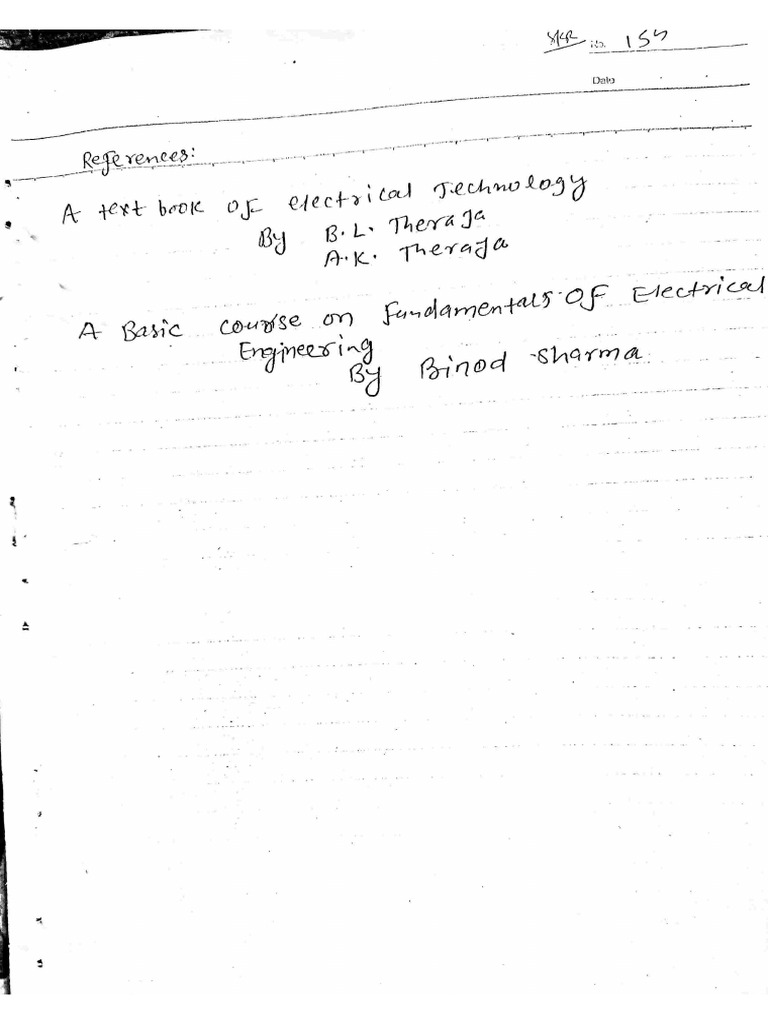 No. 155
Date
References:
A text book of electrical Technology
By B.L. Theraja
A.K. Theraja
A Basic course on Fundamentals of Electrical
Engineering
By Binod Sharma